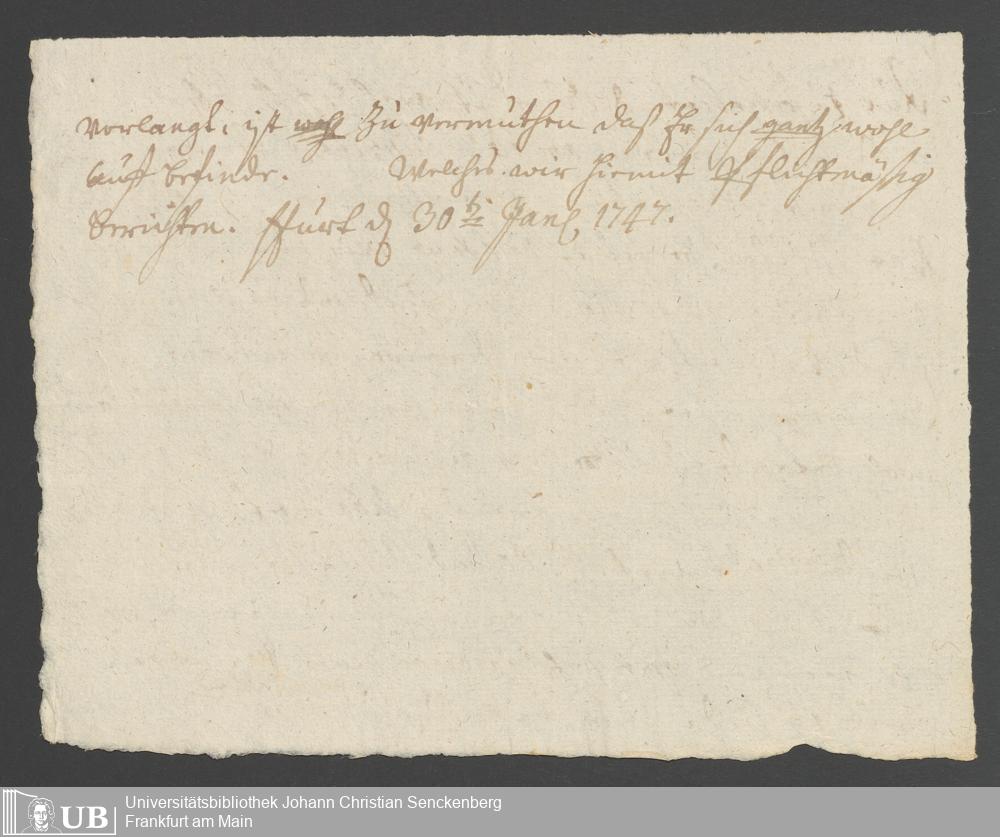 vorlangt. ist wohl zu vermuthen daß Er sich gantz wohl
auff befinde. Welches wir hiemit Pflichtmäsig
berichten. ffurt d 30ten Jan 1747.
UB
Universitätsbibliothek Johann Christian Senckenberg
Frankfurt am Main